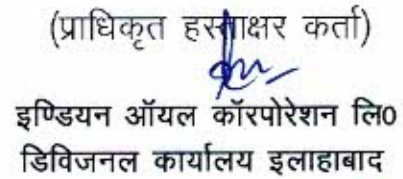 (प्राधिकृत हस्ताक्षर कर्ता)
इण्डियन ऑयल कॉरपोरेशन लि0
डिविजनल कार्यालय इलाहाबाद